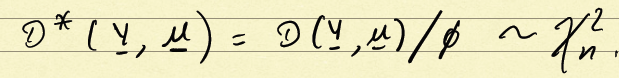 D* ( y, μ ) = D(y, μ)/ϕ ~ χ²ₙ.